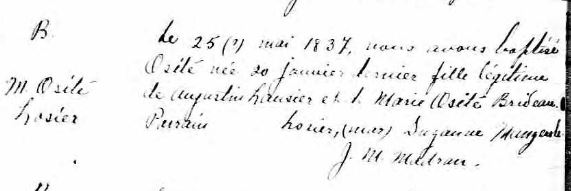 B.
M. Osité
Losier
Le 25 (?) mai 1837, nous avons baptisé
Osité née 20 janvier dernier fille légitime
de Augustin Lausier et d. Marie Osité Brideau.
Parrain Losier, (mar) Suzanne
J. M. Madran.